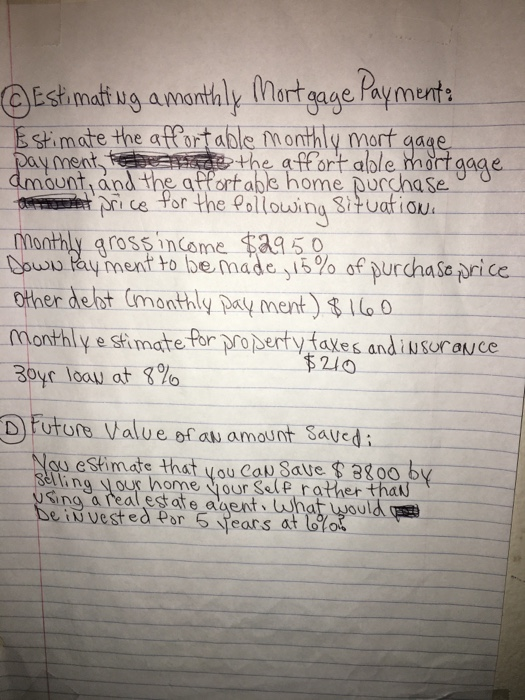 Ⓒ Estimating a monthly Mortgage Payment:
Estimate the affortable monthly mortgage
payment, the affortable mortgage
amount, and the affortable home purchase
price for the following situation.
Monthly gross income $2950
Down Payment to be made, 15% of purchase price
Other debt (monthly payment) $160
Monthly estimate for property taxes and insurance
$210
30yr loan at 8%
Ⓓ Future Value of an amount Saved:
You estimate that you can save $3800 by
selling your home your self rather than
using a real estate agent. What would
be invested for 5 years at 6%?